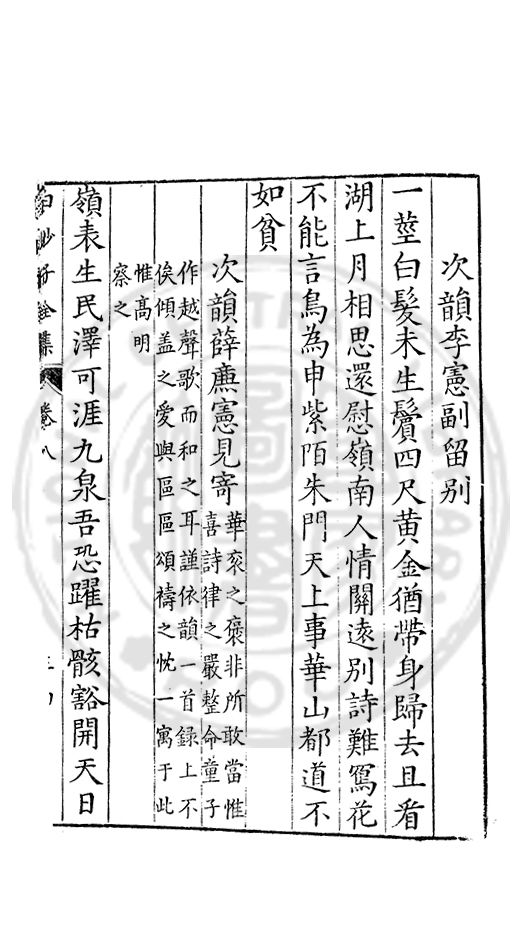 次韻李憲副留别
一莖白髮未生鬢四尺黄金猶帶身歸去且看
湖上月相思還慰嶺南人情關逺别詩難寫花
不能言鳥為申紫陌朱門天上事華山都道不
如貧
次韻薛廉憲見寄
華衮之褒非所敢當惟
喜詩律之嚴整命童子
作越聲歌而和之耳謹依韻一首録上不
俟傾盖之愛與區區頌禱之忱一寓于此
惟髙明
察之
嶺表生民澤可涯九泉吾恐躍枯骸豁開天日
白沙子全集 卷八